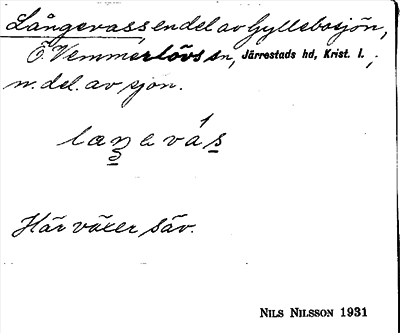 Långevass en del av Gyllebosjön,
Ö. Vemmerlövs sn, Järrestads hd, Krist. l. ;
n. del. av sjön.
Här växer säv.
NILS NILSSON 1931